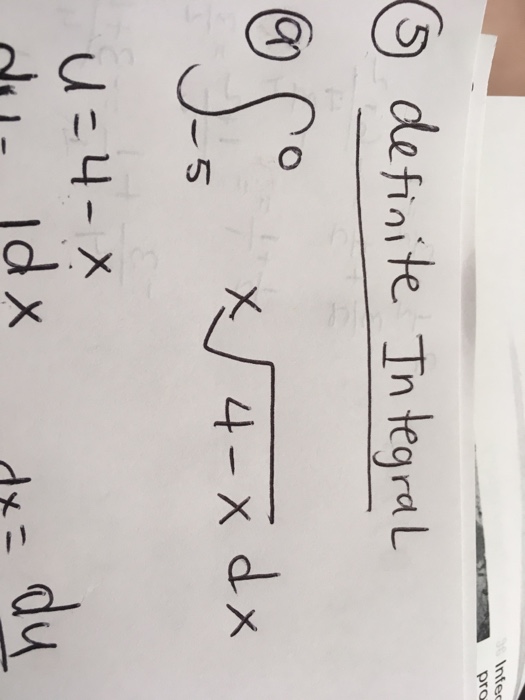 ⑤ definite Integral
ⓐ ∫₋₅⁰ x√4-x dx
u = 4 - x
du = 1dx dx = du
Infer
pro